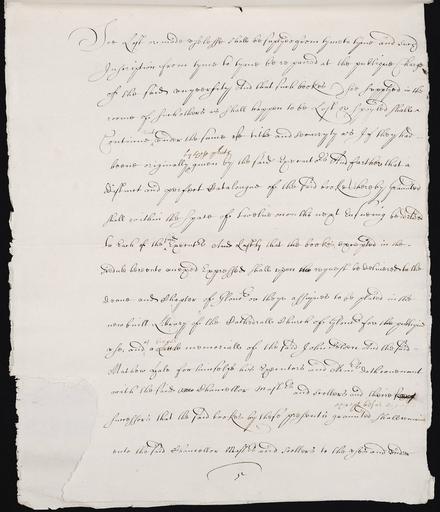 Lost or made uselesse shall be supplyed from tyme to tyme and such
Inscription from tyme to tyme be repaired at the publique charge
of the said university And that such bookes soe supplyed in the
roome of such others as shall happen to be Lost or spoyled shall
Continue under the same title and as if they had
beene originally given by the said Executors And further that a
distinct and perfect Catalogue of the said bookes hereby granted
shall within the space of twelve months next Ensuing be
to Each of the Executors And Lastly that the bookes excepted in the
hereto anexed Expressed shall upon request be delivered to the
deane and Chapter of or theyr assignes to be placed in the
new built Library of the Cathedrall Church of for the publique
use, and a memoriall of the said John Selden And the said
Mathew Hale for himselfe his Executors and doth covenant
with the said Chancellor and Schollers and theire
successors that the said bookes by these presents granted shall
unto the said Chancellor and Schollers to the uses and under
5